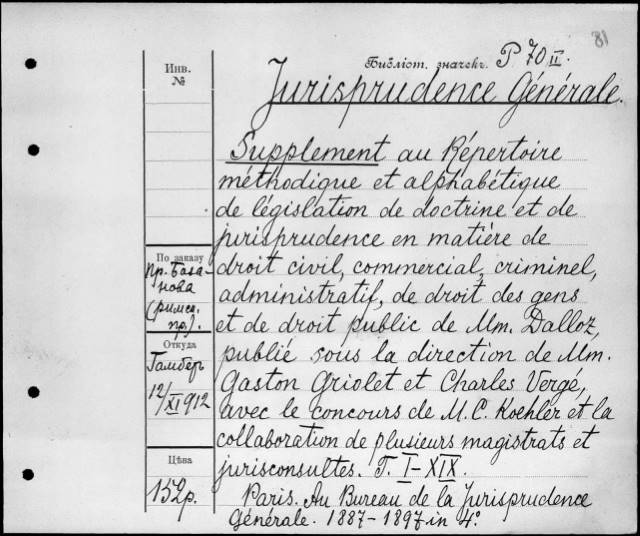 81
Библіот. значекъ. P 70 II.
Инв.
№
Jurisprudence Générale.
Supplement au Répertoire
méthodique et alphabétique
de législation de doctrine et de
jurisprudence en matière de
droit civil, commercial, criminel,
administratif, de droit des gens
et de droit public de Mm. Dalloz,
publié sous la direction de Mm.
Gaston Griolet et Charles Vergé,
avec le concours de M.C. Koehler et la
collaboration de plusieurs magistrats et
jurisconsultes. T. I-XIX.
Paris. Au Bureau de la Jurisprudence
Générale. 1887-1897 in 4°.
По заказу
пр. База-
нова
(римск.
пр.).
Откуда
Гамберъ
12/XI 912
Цѣна
152 р.